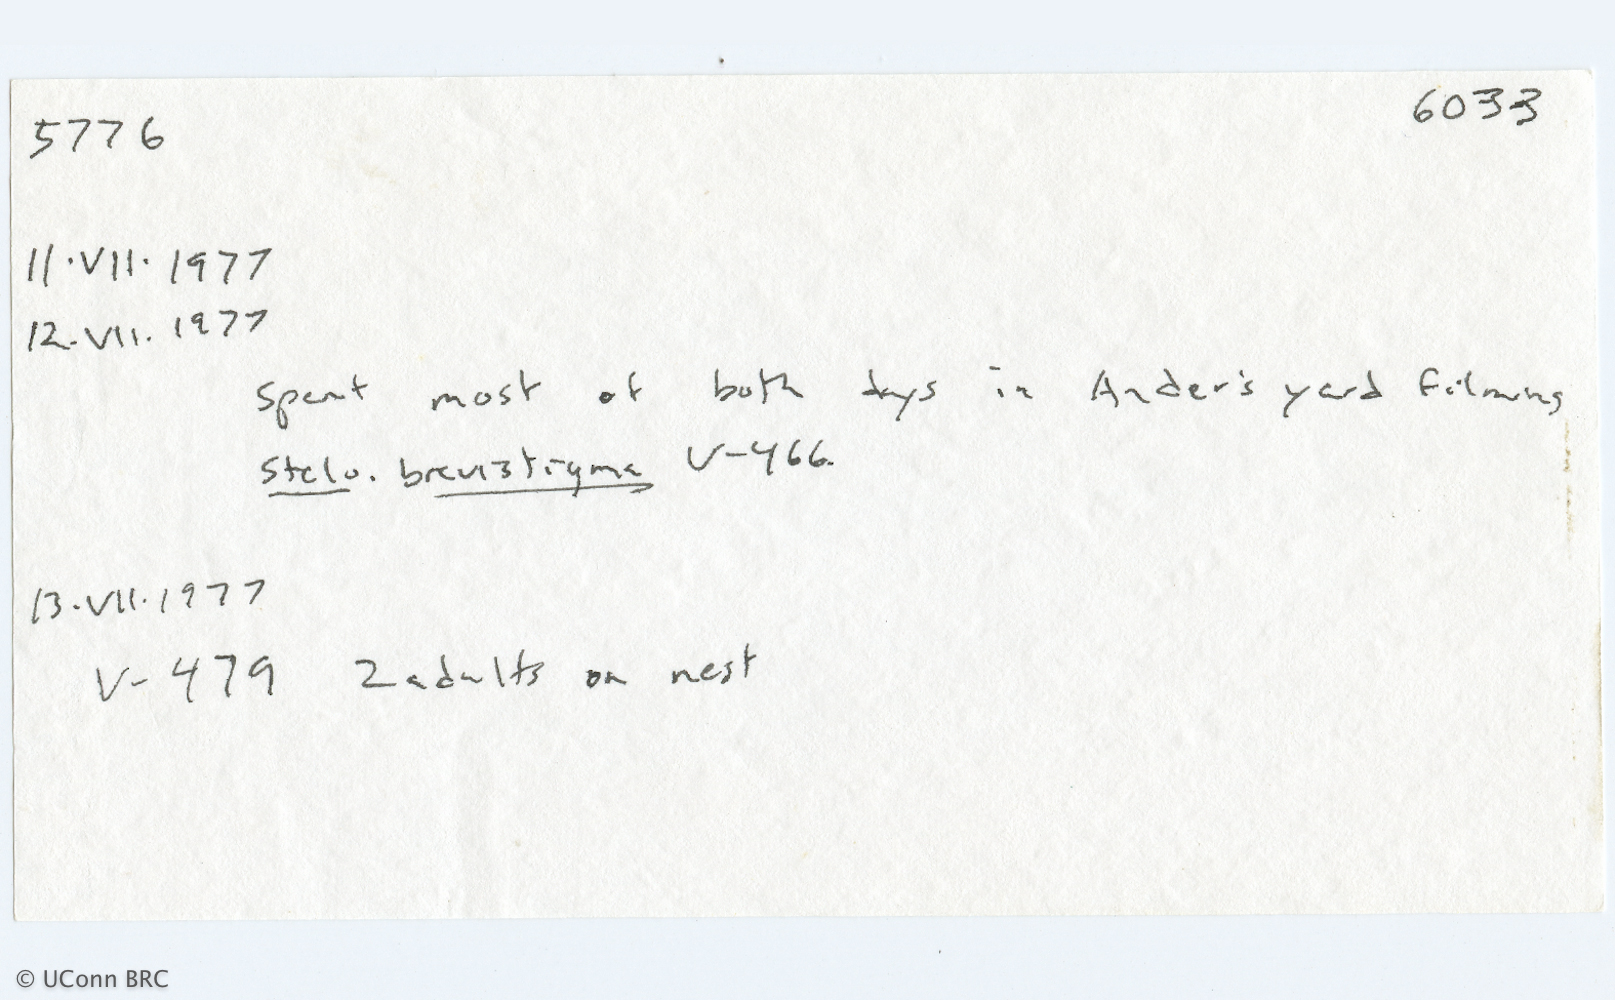 5776
6033
11.VII.1977
12.VII.1977
Spent most of both days in Ander's yard filming
Stelo. brevistigma V-466.
13.VII.1977
V-479 2 adults on nest
© UConn BRC